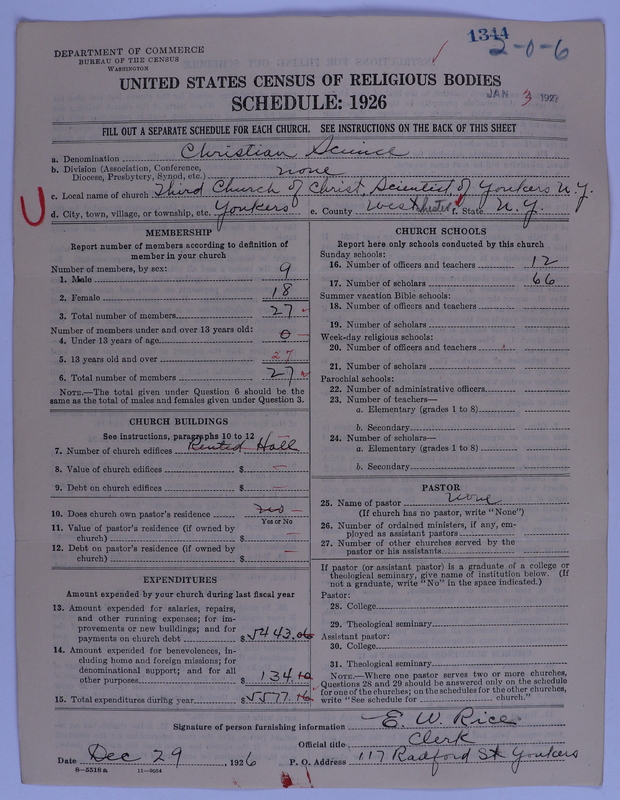 DEPARTMENT OF COMMERCE
BUREAU OF THE CENSUS
WASHINGTON
1344
2-0-6
UNITED STATES CENSUS OF RELIGIOUS BODIES
SCHEDULE: 1926
JAN 3 1927
FILL OUT A SEPARATE SCHEDULE FOR EACH CHURCH. SEE INSTRUCTIONS ON THE BACK OF THIS SHEET
a. Denomination Christian Science
b. Division (Association, Conference, Diocese, Presbytery, Synod, etc.) none
c. Local name of church Third Church of Christ, Scientist of Yonkers N.Y.
d. City, town, village, or township, etc. Yonkers e. County Westchester f. State N.Y.
U
MEMBERSHIP
Report number of members according to definition of
member in your church
Number of members, by sex:
1. Male 9
2. Female 18
3. Total number of members 27
Number of members under and over 13 years old:
4. Under 13 years of age 0
5. 13 years old and over 27
6. Total number of members 27
NOTE.—The total given under Question 6 should be the
same as the total of males and females given under Question 3.
CHURCH BUILDINGS
See instructions, paragraphs 10 to 12
7. Number of church edifices Rented Hall
8. Value of church edifices $ —
9. Debt on church edifices $ —
10. Does church own pastor's residence no
Yes or No
11. Value of pastor's residence (if owned by
church) $ —
12. Debt on pastor's residence (if owned by
church) $ —
EXPENDITURES
Amount expended by your church during last fiscal year
13. Amount expended for salaries, repairs,
and other running expenses; for im-
provements or new buildings; and for
payments on church debt $ 5443.06
14. Amount expended for benevolences, in-
cluding home and foreign missions; for
denominational support; and for all
other purposes $ 134.10
15. Total expenditures during year $ 5577.16
CHURCH SCHOOLS
Report here only schools conducted by this church
Sunday schools:
16. Number of officers and teachers 12
17. Number of scholars 66
Summer vacation Bible schools:
18. Number of officers and teachers
19. Number of scholars
Week-day religious schools:
20. Number of officers and teachers
21. Number of scholars
Parochial schools:
22. Number of administrative officers
23. Number of teachers—
a. Elementary (grades 1 to 8)
b. Secondary
24. Number of scholars—
a. Elementary (grades 1 to 8)
b. Secondary
PASTOR
25. Name of pastor none
(If church has no pastor, write "None")
26. Number of ordained ministers, if any, em-
ployed as assistant pastors
27. Number of other churches served by the
pastor or his assistants
If pastor (or assistant pastor) is a graduate of a college or
theological seminary, give name of institution below. (If
not a graduate, write "No" in the space indicated.)
Pastor:
28. College
29. Theological seminary
Assistant pastor:
30. College
31. Theological seminary
NOTE.—Where one pastor serves two or more churches,
Questions 28 and 29 should be answered only on the schedule
for one of the churches; on the schedules for the other churches,
write "See schedule for church."
Signature of person furnishing information E. W. Rice
Official title Clerk
Date Dec 29, 1926 P. O. Address 117 Radford St Yonkers
8—5518a 11—9054